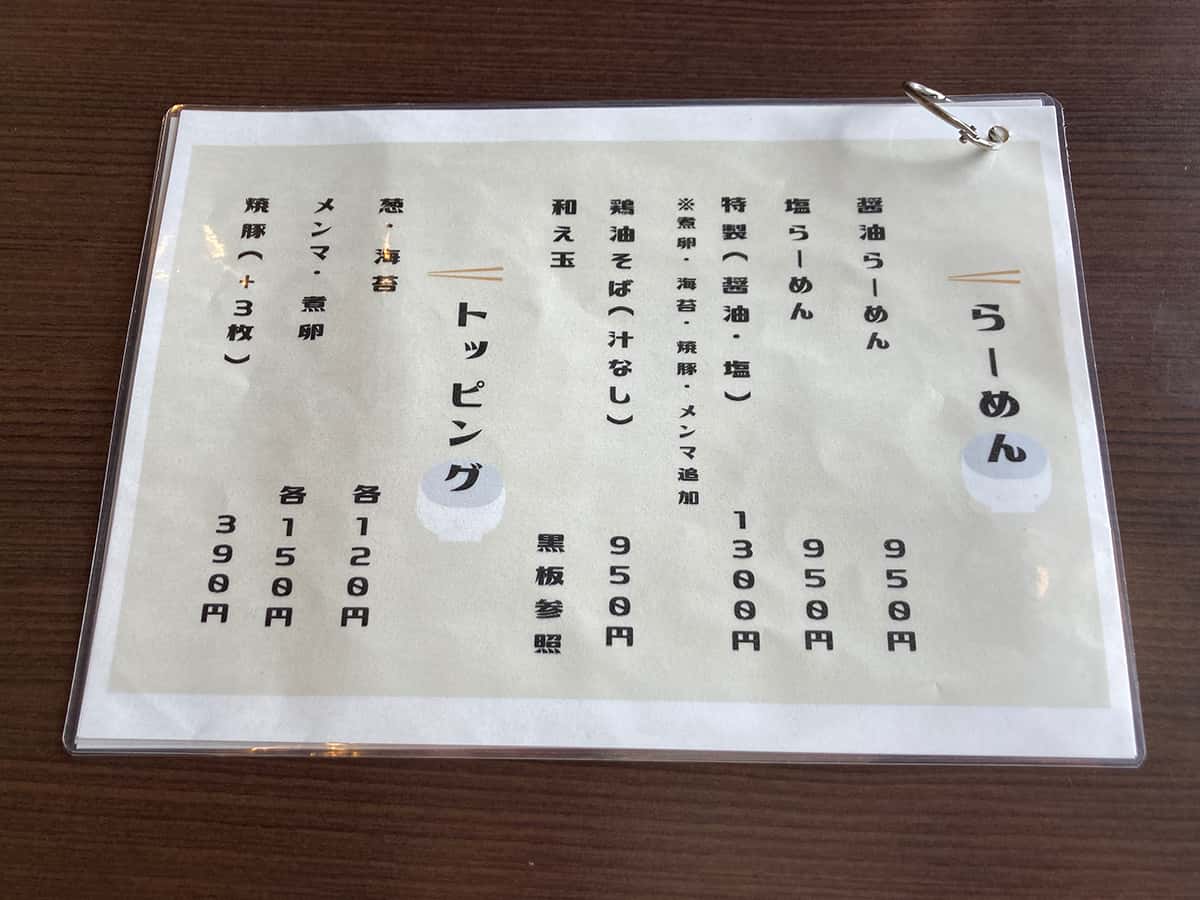 らーめん
醤油らーめん 950円
塩らーめん 950円
特製(醤油・塩) 1300円
※煮卵・海苔・焼豚・メンマ追加
鶏油そば(汁なし) 950円
和え玉 黒板参照
トッピング
葱・海苔 各120円
メンマ・煮卵 各150円
焼豚(+3枚) 390円